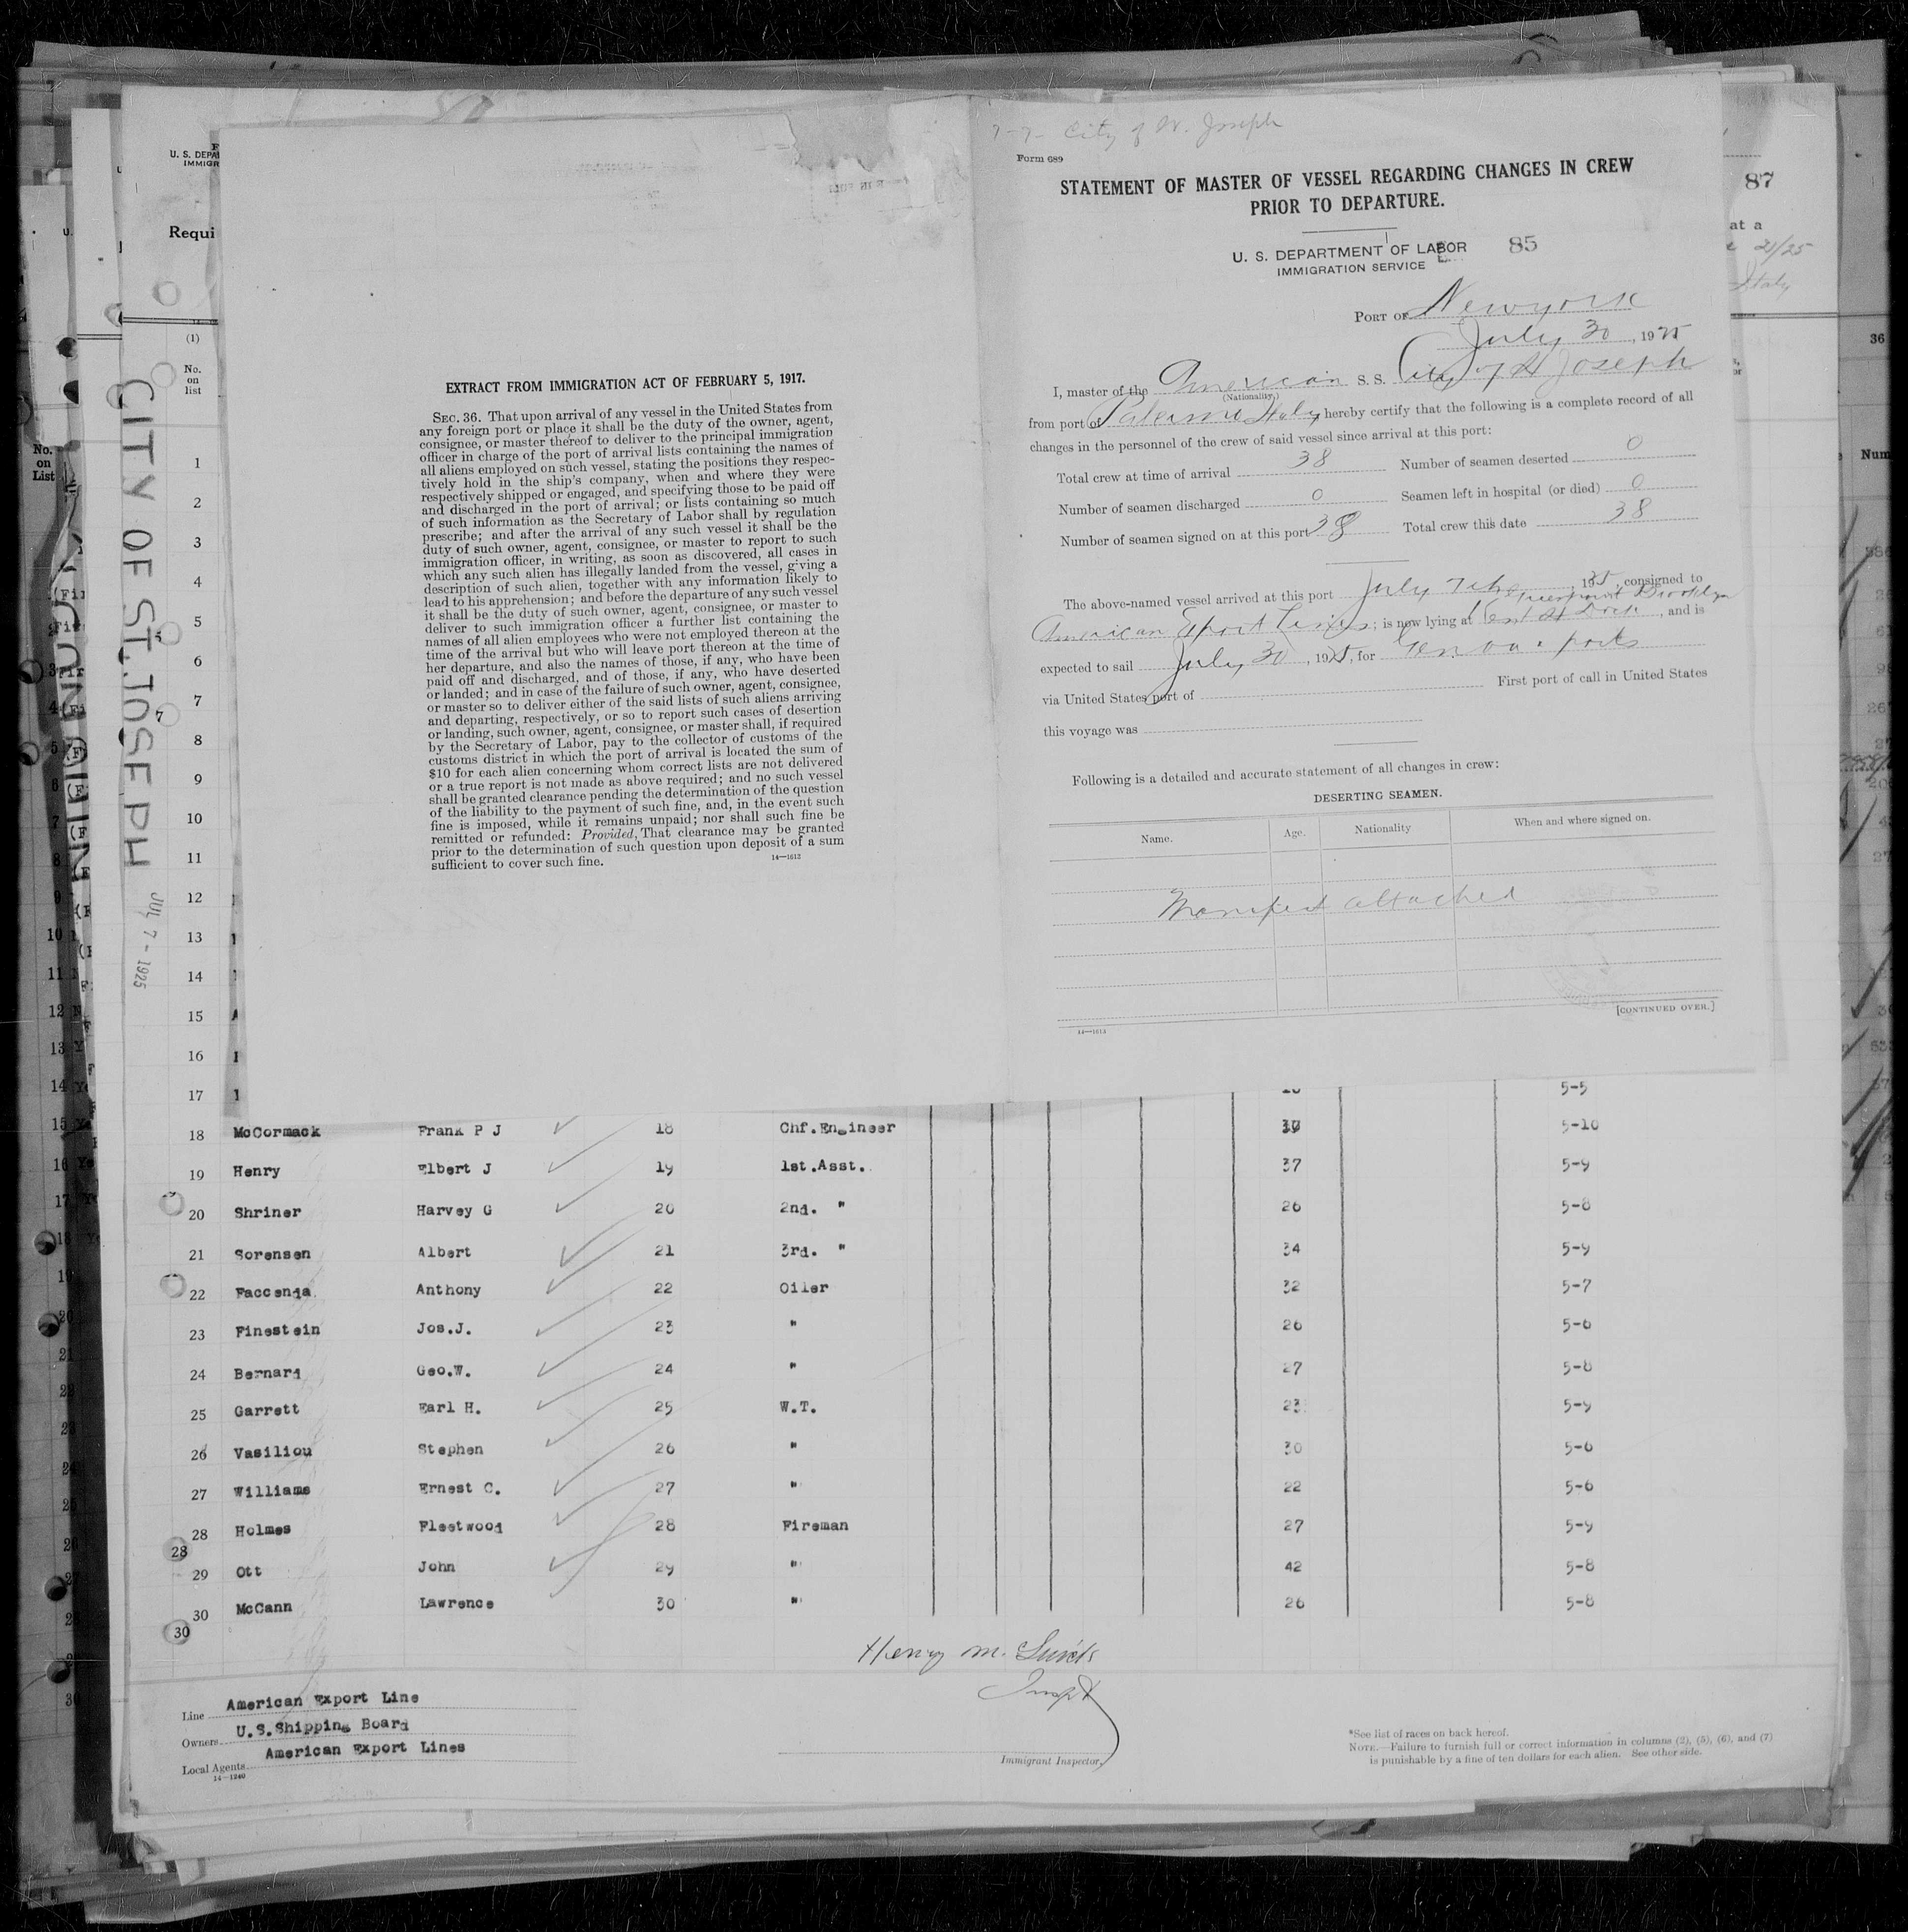 7-7- City of St. Joseph
Form 689
STATEMENT OF MASTER OF VESSEL REGARDING CHANGES IN CREW
PRIOR TO DEPARTURE.
U. S. DEPARTMENT OF LABOR
IMMIGRATION SERVICE
85
PORT OF New york
July 30, 1925
I, master of the American S. S. City of St Joseph
(Nationality)
from port of Palermo Italy, hereby certify that the following is a complete record of all
changes in the personnel of the crew of said vessel since arrival at this port:
Total crew at time of arrival 38 Number of seamen deserted 0
Number of seamen discharged 0 Seamen left in hospital (or died) 0
Number of seamen signed on at this port 38 Total crew this date 38
The above-named vessel arrived at this port July 7th, 1925, consigned to
American Export Lines; is now lying at Kent St Dock Greenpoint Brooklyn, and is
expected to sail July 30, 1925, for Genoa ports
via United States port of First port of call in United States
this voyage was
Following is a detailed and accurate statement of all changes in crew:
DESERTING SEAMEN.
Name. Age. Nationality When and where signed on.
Manifest attached
[CONTINUED OVER.]
14—1613
EXTRACT FROM IMMIGRATION ACT OF FEBRUARY 5, 1917.
SEC. 36. That upon arrival of any vessel in the United States from
any foreign port or place it shall be the duty of the owner, agent,
consignee, or master thereof to deliver to the principal immigration
officer in charge of the port of arrival lists containing the names of
all aliens employed on such vessel, stating the positions they respec-
tively hold in the ship's company, when and where they were
respectively shipped or engaged, and specifying those to be paid off
and discharged in the port of arrival; or lists containing so much
of such information as the Secretary of Labor shall by regulation
prescribe; and after the arrival of any such vessel it shall be the
duty of such owner, agent, consignee, or master to report to such
immigration officer, in writing, as soon as discovered, all cases in
which any such alien has illegally landed from the vessel, giving a
description of such alien, together with any information likely to
lead to his apprehension; and before the departure of any such vessel
it shall be the duty of such owner, agent, consignee, or master to
deliver to such immigration officer a further list containing the
names of all alien employees who were not employed thereon at the
time of the arrival but who will leave port thereon at the time of
her departure, and also the names of those, if any, who have been
paid off and discharged, and of those, if any, who have deserted
or landed; and in case of the failure of such owner, agent, consignee,
or master so to deliver either of the said lists of such aliens arriving
and departing, respectively, or so to report such cases of desertion
or landing, such owner, agent, consignee, or master shall, if required
by the Secretary of Labor, pay to the collector of customs of the
customs district in which the port of arrival is located the sum of
$10 for each alien concerning whom correct lists are not delivered
or a true report is not made as above required; and no such vessel
shall be granted clearance pending the determination of the question
of the liability to the payment of such fine, and, in the event such
fine is imposed, while it remains unpaid; nor shall such fine be
remitted or refunded: Provided, That clearance may be granted
prior to the determination of such question upon deposit of a sum
sufficient to cover such fine.
14—1613
U. S. DEPA
IMMIGR
Requi
(1)
No.
on
list
CITY OF ST. JOSEPH
JUL 7 - 1925
1
2
3
4
5
6
7
8
9
10
11
12
13
14
15
16
17 5-5
18 McCormack Frank P J 18 Chf.Engineer 5-10
19 Henry Elbert J 19 1st.Asst. 37 5-9
20 Shriner Harvey G 20 2nd. " 26 5-8
21 Sorensen Albert 21 3rd. " 34 5-9
22 Faccenda Anthony 22 Oiler 32 5-7
23 Finestein Jos.J. 23 " 26 5-6
24 Bernard Geo.W. 24 " 27 5-8
25 Garrett Earl H. 25 W.T. 23 5-9
26 Vasiliou Stephen 26 " 30 5-6
27 Williams Ernest C. 27 " 22 5-6
28 Holmes Fleetwood 28 Fireman 27 5-9
28
29 Ott John 29 " 42 5-8
30 McCann Lawrence 30 " 26 5-8
30
Henry M.
Inspt
Immigrant Inspector.
Line American Export Line
Owners U.S.Shipping Board
Local Agents American Export Lines
14—1240
*See list of races on back hereof.
NOTE.—Failure to furnish full or correct information in columns (2), (5), (6), and (7)
is punishable by a fine of ten dollars for each alien. See other side.
87
at a
21/25
Italy
36